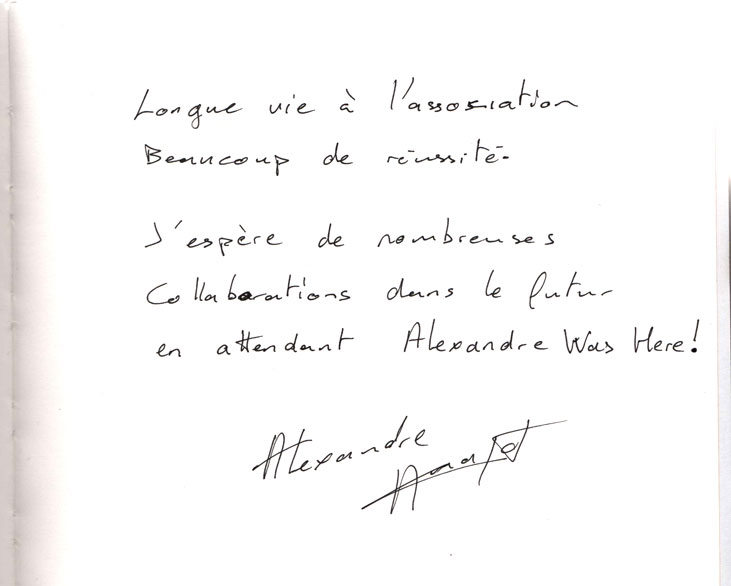 Longue vie à l'association
Beaucoup de réussité.
J'espère de nombreuses
Collaborations dans le futur
en attendant Alexandre Was Here!
Alexandre